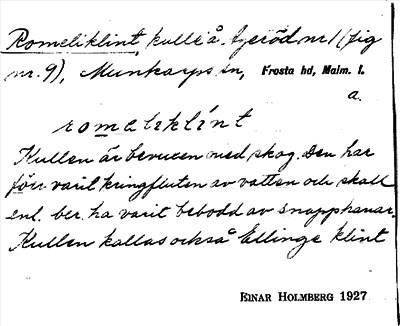 Romeliklint, kulle å Tjeröd nr 1 (fig
nr. 9), Munkarps sn, Frosta hd, Malm. l.
a.
romeliklint
Kullen är bevuxen med skog. Den har
förr varit kringfluten av vatten och skall
enl. ber. ha varit bebodd av snapphanar.
Kullen kallas också Ellinge klint
EINAR HOLMBERG 1927